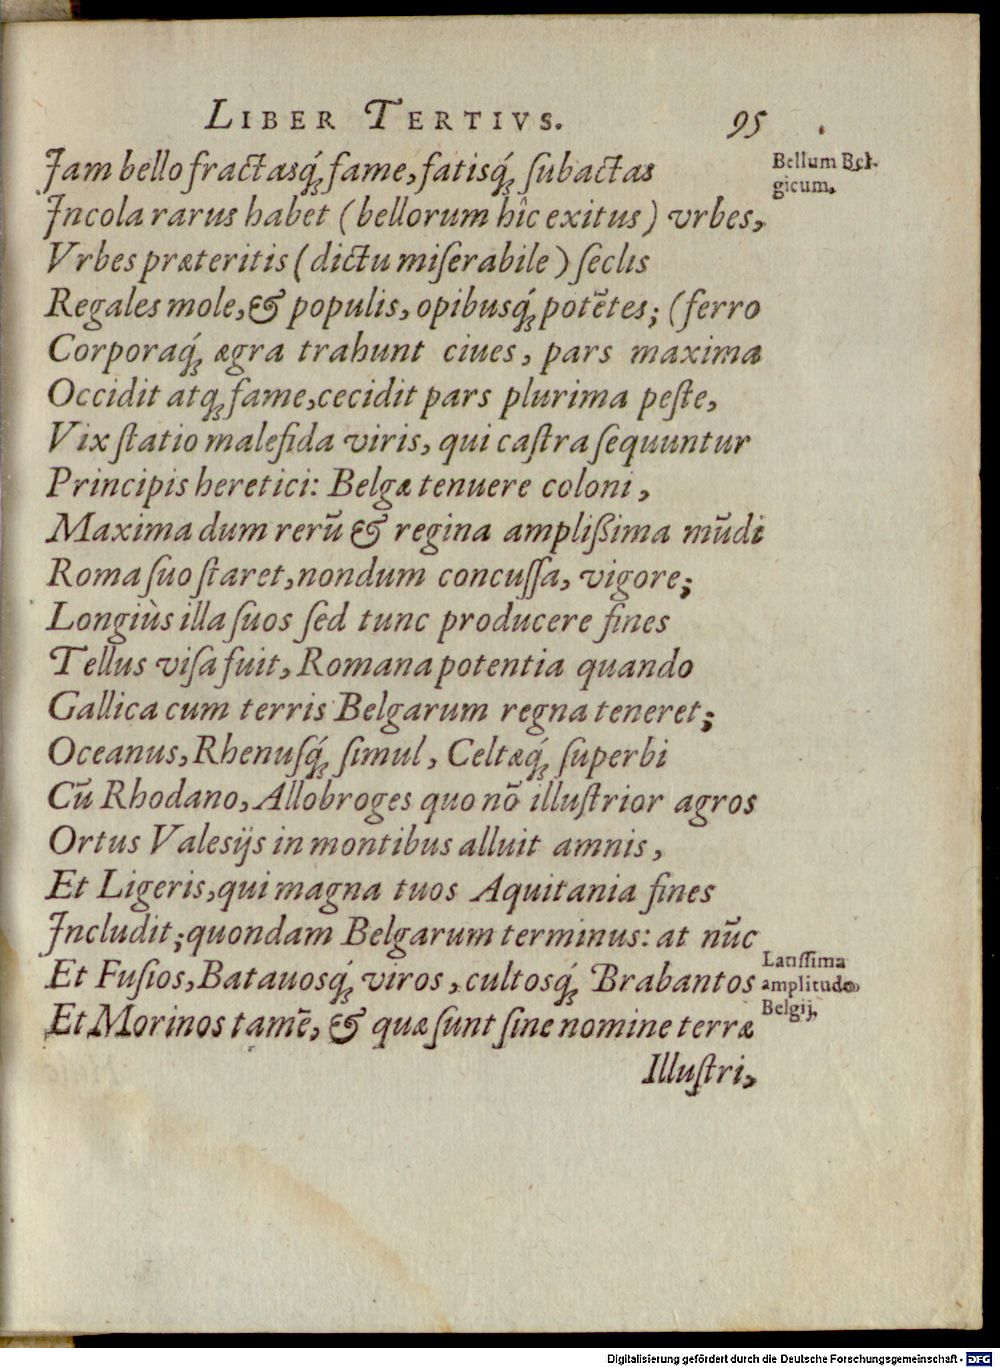 LIBER TERTIVS. 95
Jam bello fractasq́ꝫ fame, fatisq́ꝫ ſubactas
Bellum Bel-
gicum.
Jncola rarus habet (bellorum hîc exitus) vrbes,
Vrbes præteritis (dictu miſerabile) ſeclis
Regales mole, & populis, opibusq́ꝫ potẽtes; (ferro
Corporaq́ꝫ ægra trahunt ciues, pars maxima
Occidit atqꝫ fame, cecidit pars plurima peſte,
Vix ſtatio malefida viris, qui caſtra ſequuntur
Principis heretici: Belgæ tenuere coloni,
Maxima dum rerũ & regina ampliſſima mũdi
Roma ſuo ſtaret, nondum concuſſa, vigore;
Longiùs illa ſuos ſed tunc producere fines
Tellus viſa fuit, Romana potentia quando
Gallica cum terris Belgarum regna teneret;
Oceanus, Rhenuſq́ꝫ ſimul, Celtæq́ꝫ ſuperbi
Cũ Rhodano, Allobroges quo nõ illuſtrior agros
Ortus Valesijs in montibus alluit amnis,
Et Ligeris, qui magna tuos Aquitania fines
Jncludit; quondam Belgarum terminus: at nũc
Et Fuſios, Batauosq́ꝫ viros, cultosq́ꝫ Brabantos
Latiſſima
amplitudo
Belgij,
Et Morinos tamẽ, & quæ ſunt ſine nomine terræ
Illuſtri,
Digitalisierung gefördert durch die Deutsche Forschungsgemeinschaft - DFG